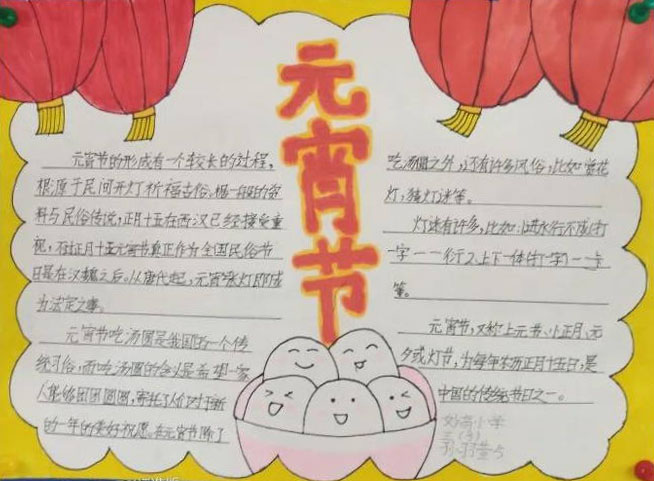 元宵节
元宵节的形成有一个较长的过程,
根源于民间开灯祈福古俗。据一般的资
料与民俗传说,正月十五在西汉已经接受重
视,不过正月十五元宵节真正作为全国民俗节
日是在汉魏之后。从唐代起,元宵张灯即成
为法定之事。
元宵节吃汤圆是我国的一个传
统习俗,而吃汤圆的含义是希望一家
人能够团团圆圆,寄托了人们对于新
的一年的美好祝愿。在元宵节除了
吃汤圆之外,还有许多风俗,比如赏花
灯,猜灯谜等。
灯谜有许多,比如:进水行不成(打
一字——衍)2.上下一体(打一字)——卡
等。
元宵节,又称上元节、小正月、元
夕或灯节,为每年农历正月十五日,是
中国的传统节日之一。
小学